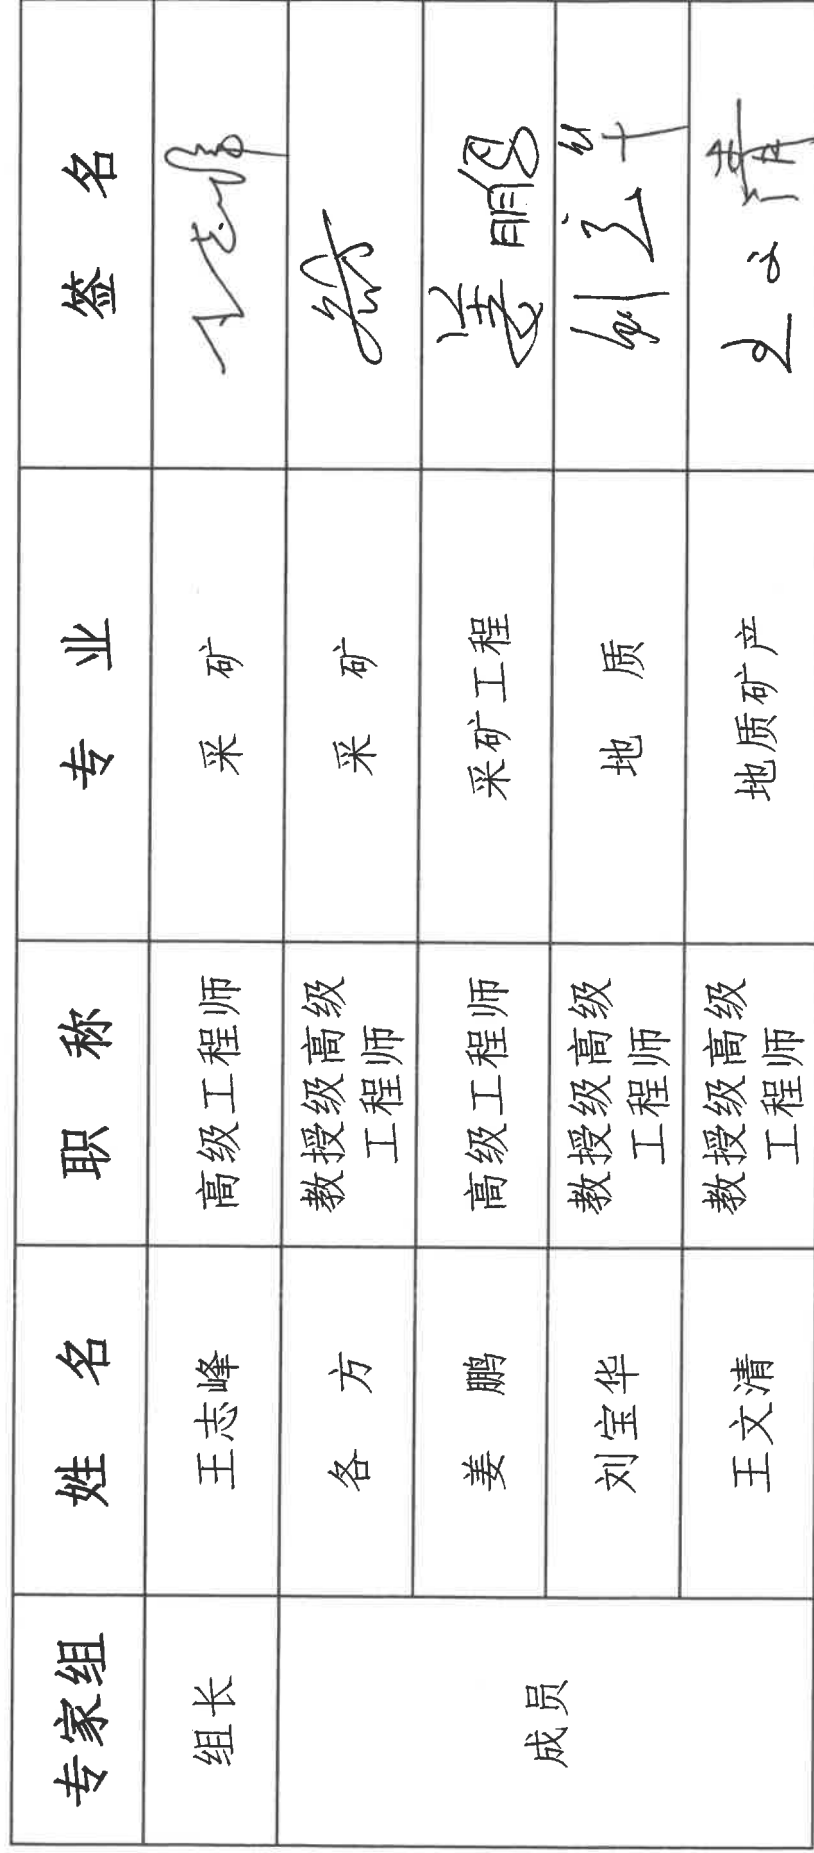 专家组 姓 名 职 称 专 业 签 名
组长 王志峰 高级工程师 采 矿 王志峰
成员 各 方 教授级高级工程师 采 矿
姜 鹏 高级工程师 采矿工程 姜鹏
刘宝华 教授级高级工程师 地 质 刘宝华
王文清 教授级高级工程师 地质矿产 王文清